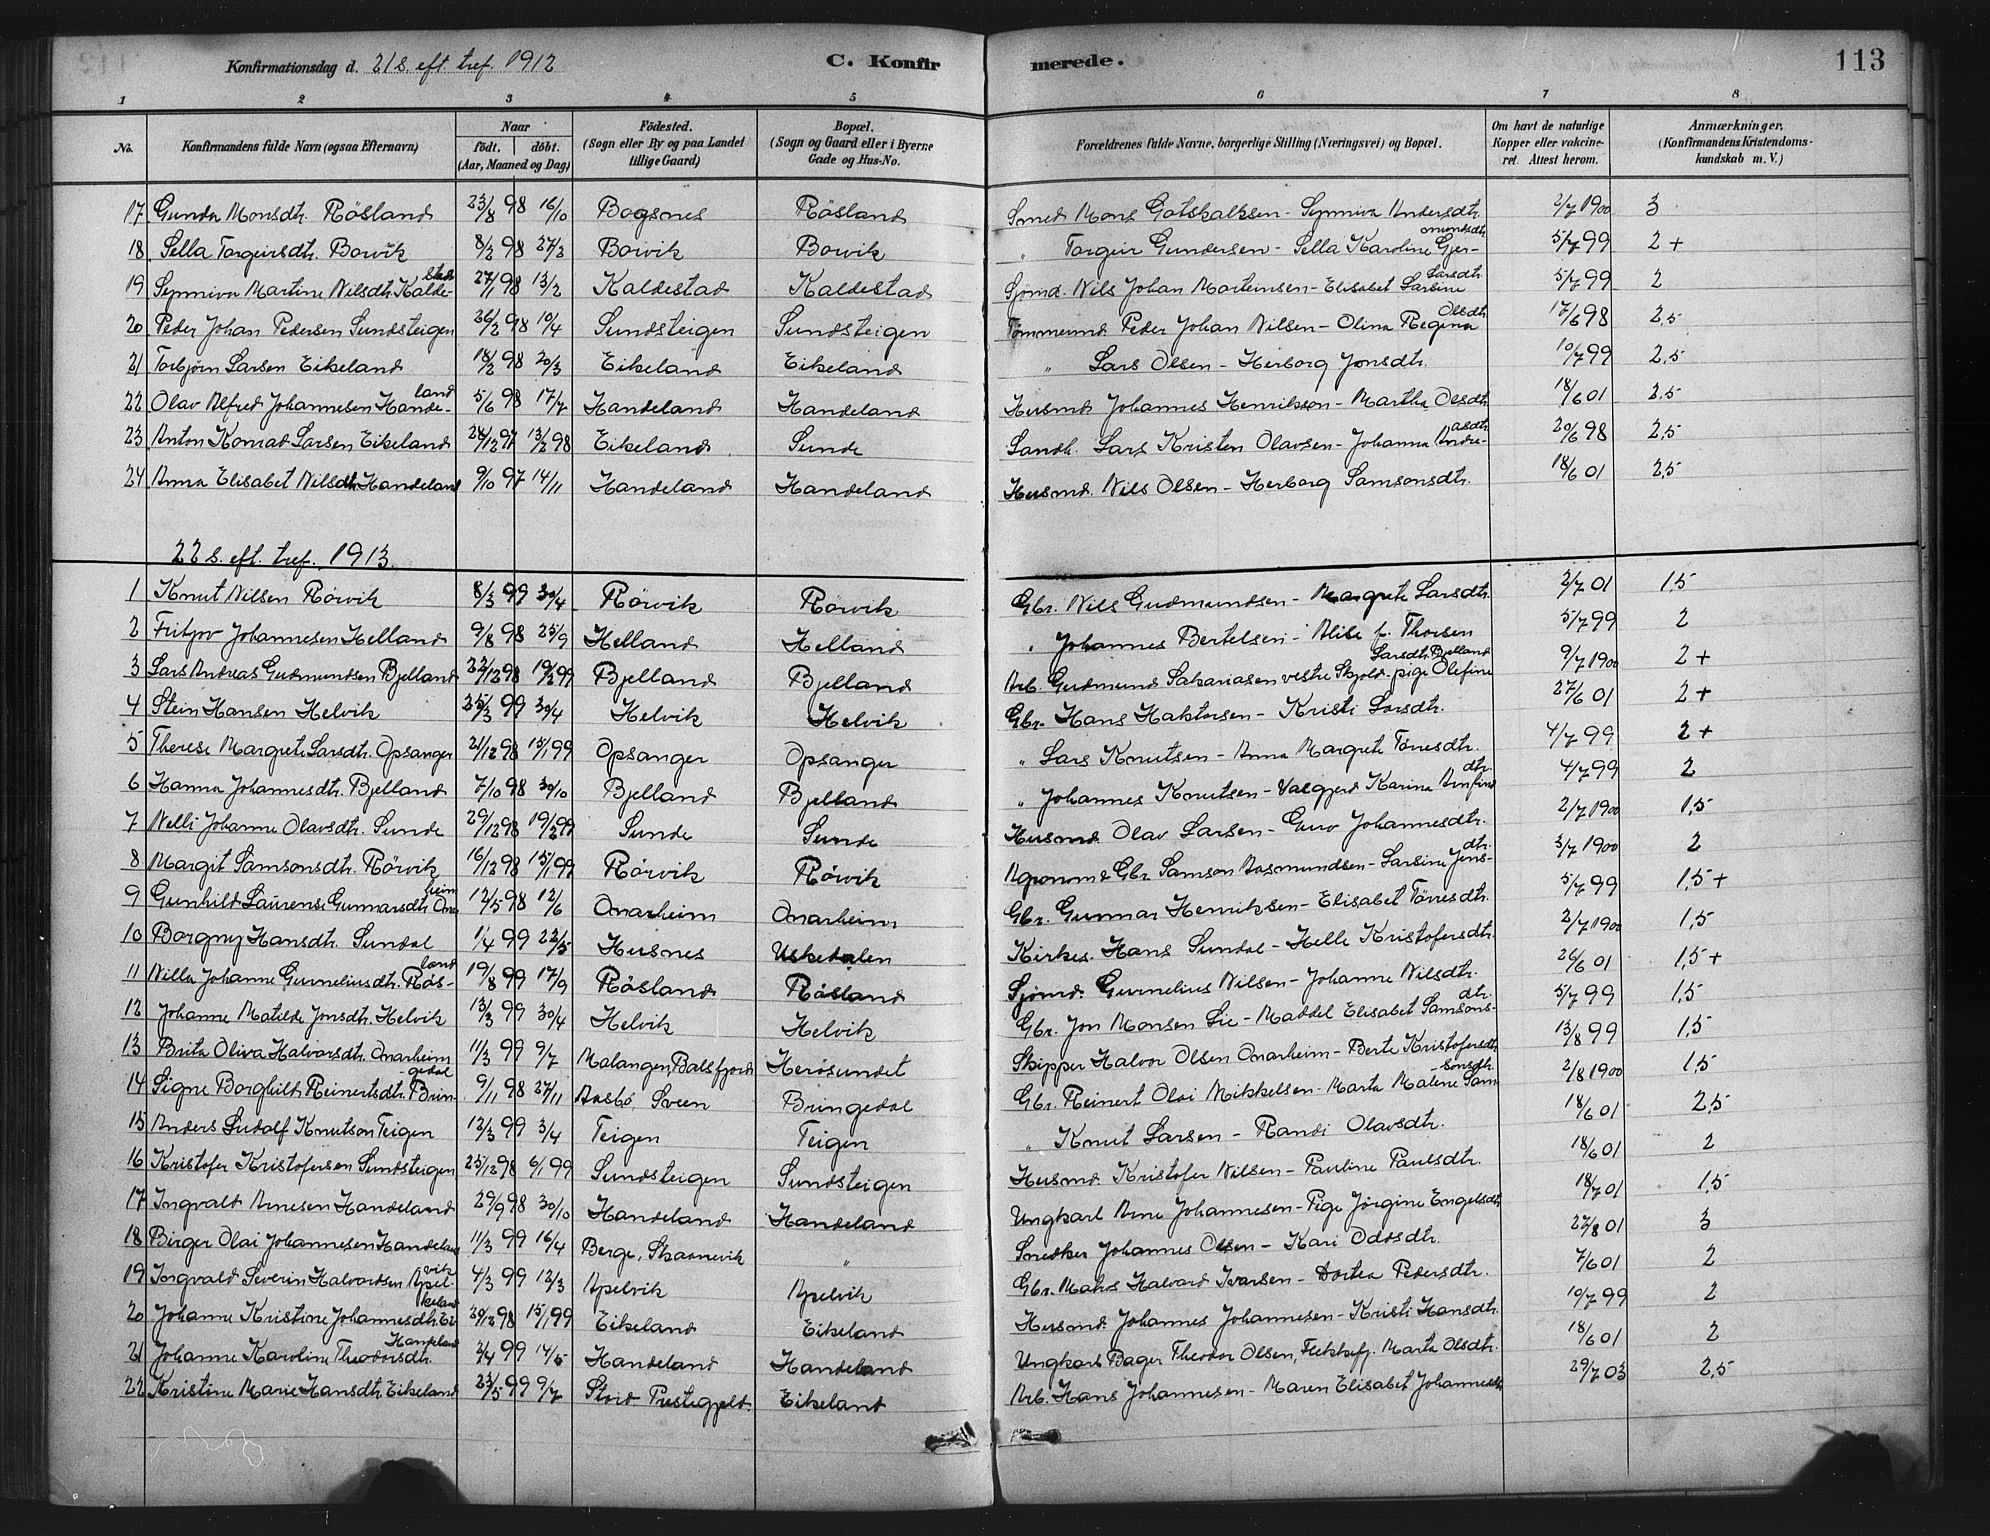 Konfirmationsdag d. 21 s. eft. tref. 1912 C. Konfirmerede. 113
1 2 3 4 5 6 7 8
No. Konfirmandens fulde Navn (ogsaa Efternavn) Naar født. døbt. (Aar, Maaned og Dag) Fødested. (Sogn eller By og paa Landet tillige Gaard) Bopæl. (Sogn og Gaard eller i Byerne Gade og Hus-No. Forældrenes fulde Navne, borgerlige Stilling (Næringsvei) og Bopæl. Om havt de naturlige Kopper eller vakcineret. Attest herom. Anmærkninger, (Konfirmandens Kristendomskundskab m. V.)
17 Gunda Monsdtr. Røsland 23/8 98 16/10 Bogsnes Røsland Smed Mons Gotskalksen - Synniva Andersdtr. 2/7 1900 3
18 Sella Torgeirsdtr. Borvik 8/2 98 27/3 Borvik Borvik " Torgeir Gundersen - Sella Karoline Gjermundsdtr 5/7 99 2+
19 Synniva Martine Nilsdtr. Kaldestad 27/1 98 13/2 Kaldestad Kaldestad Sjømd. Nils Johan Marteinsen - Elisabet Larsine Larsdtr. 5/7 99 2
20 Peder Johan Pedersen Sundsteigen 26/2 98 10/4 Sundsteigen Sundsteigen Tømmermd. Peder Johan Nilsen - Olina Regina Olsdtr. 17/6 98 2,5
21 Torbjørn Larsen Eikeland 18/2 98 20/3 Eikeland Eikeland " Lars Olsen - Herborg Jonsdtr. 10/7 99 2,5
22 Olav Alfred Johannesen Handeland 5/6 98 17/7 Handeland Handeland Husmd. Johannes Henriksen - Martha Olsdtr. 18/6 01 2,5
23 Anton Konrad Larsen Eikeland 24/12 97 13/2 98 Eikeland Sunde Landh. Lars Kristen Olavsen - Johanna Andreasdtr. 20/6 98 2,5
24 Anna Elisabet Nilsdtr. Handeland 9/10 97 14/11 Handeland Handeland Husmd. Nils Olsen - Herborg Samsonsdtr. 18/6 01 2,5
22 s. eft. tref. 1913.
1 Knut Nilsen Rørvik 8/3 99 30/4 Rørvik Rørvik Gbr. Nils Gudmundsen - Margrete Larsdtr. 2/7 01 1,5
2 Fritjov Johannesen Helland 9/8 98 25/9 Helland Helland " Johannes Bertelsen - Alise f. Thorsen 5/7 99 2
3 Lars Andreas Gudmundsen Bjelland 22/12 98 19/2 99 Bjelland Bjelland Arb. Gudmund Sakariasen vestre Skjold - pige Olefine Larsdtr. Bjelland 9/7 1900 2+
4 Stein Hansen Helvik 25/3 99 30/4 Helvik Helvik Gbr. Hans Haktorsen - Kristi Larsdtr. 27/6 01 2+
5 Therese Margrete Larsdtr. Opsanger 21/12 98 15/1 99 Opsanger Opsanger " Lars Knutsen - Anna Margrete Tørresdtr. 4/7 99 2+
6 Hanna Johannesdtr. Bjelland 7/10 98 30/10 Bjelland Bjelland " Johannes Knutsen - Valgjerd Karina Arnfinsdtr. 4/7 99 2
7 Nelli Johanne Olavsdtr. Sunde 29/12 98 19/2 99 Sunde Sunde Husmd. Olav Larsen - Guro Johannesdtr. 2/7 1900 1,5
8 Margit Samsonsdtr. Rørvik 16/12 98 15/1 99 Rørvik Rørvik Agronom & Gbr. Samson Aasmundsen - Larsine Jensdtr. 3/7 1900 2
9 Gunhild Laurense Gunnarsdtr. Onarheim 12/5 98 12/6 Onarheim Onarheim Gbr. Gunnar Henriksen - Elisabet Tørresdtr. 5/7 99 1,5+
10 Borgny Hansdtr. Sundal 1/4 99 22/5 Husnes Uskedalen Kirkes. Hans Sundal - Helle Kristofersdtr. 2/7 1900 1,5
11 Nilla Johanne Gunneliusdtr. Røsland 19/8 99 17/9 Røsland Røsland Sjømd. Gunnelius Nilsen - Johanne Nilsdtr. 26/6 01 1,5+
12 Johanne Matilde Jonsdtr. Helvik 13/3 99 30/4 Helvik Helvik Gbr. Jon Monsen Lie - Maddel Elisabet Samsonsdtr. 5/7 99 1,5
13 Brita Oliva Halvorsdtr. Onarheim 11/3 99 9/7 Malangen, Balsfjord Herøsundet Skipper Halvor Olsen Onarheim - Berte Kristofersdtr. 13/8 99 1,5
14 Signe Borghild Reinertsdtr. Bringedal 9/11 98 27/11 Aasbø, Sveen Bringedal Gbr. Reinert Olai Mikkelsen - Marta Malene Samsonsdtr. 2/8 1900 1,5
15 Anders Ludolf Knutson Teigen 12/3 99 3/4 Teigen Teigen " Knut Larsen - Randi Olavsdtr. 18/6 01 2,5
16 Kristofer Kristofersen Sundsteigen 25/12 98 6/1 99 Sundsteigen Sundsteigen Husmd. Kristofer Nilsen - Pauline Paulsdtr. 18/6 01 2
17 Ingvald Arnesen Handeland 29/9 98 30/10 Handeland Handeland Ungkarl Arne Johannesen - Pige Jørgine Engelsdtr. 18/7 01 1,5
18 Birger Olai Johannesen Handeland 11/3 99 16/4 Berge, Skaanevik " Snedker Johannes Olsen - Kari Oddsdtr. 27/8 01 3
19 Ingvald Severin Halvardsen Apelvik 4/3 99 12/3 Apelvik Apelvik Gbr. Matros Halvard Ivarsen - Dortea Pedersdtr. 7/6 01 2
20 Johanne Kristine Johannesdtr. Eikeland 20/12 98 15/1 99 Eikeland Eikeland Husmd. Johannes Johannesen - Kristi Hansdtr. 10/7 99 2
21 Johanne Karoline Theodorsdtr. Handeland 2/4 99 14/5 Handeland Handeland Ungkarl Bager Theodor Olsen, Flekkefj. Marta Olsdtr. 18/6 01 2
22 Kristine Marie Hansdtr. Eikeland 23/5 99 9/7 Stord Prestegjeld. Eikeland Arb. Hans Johannesen - Maren Elisabet Johannesdtr. 29/7 03 2,5